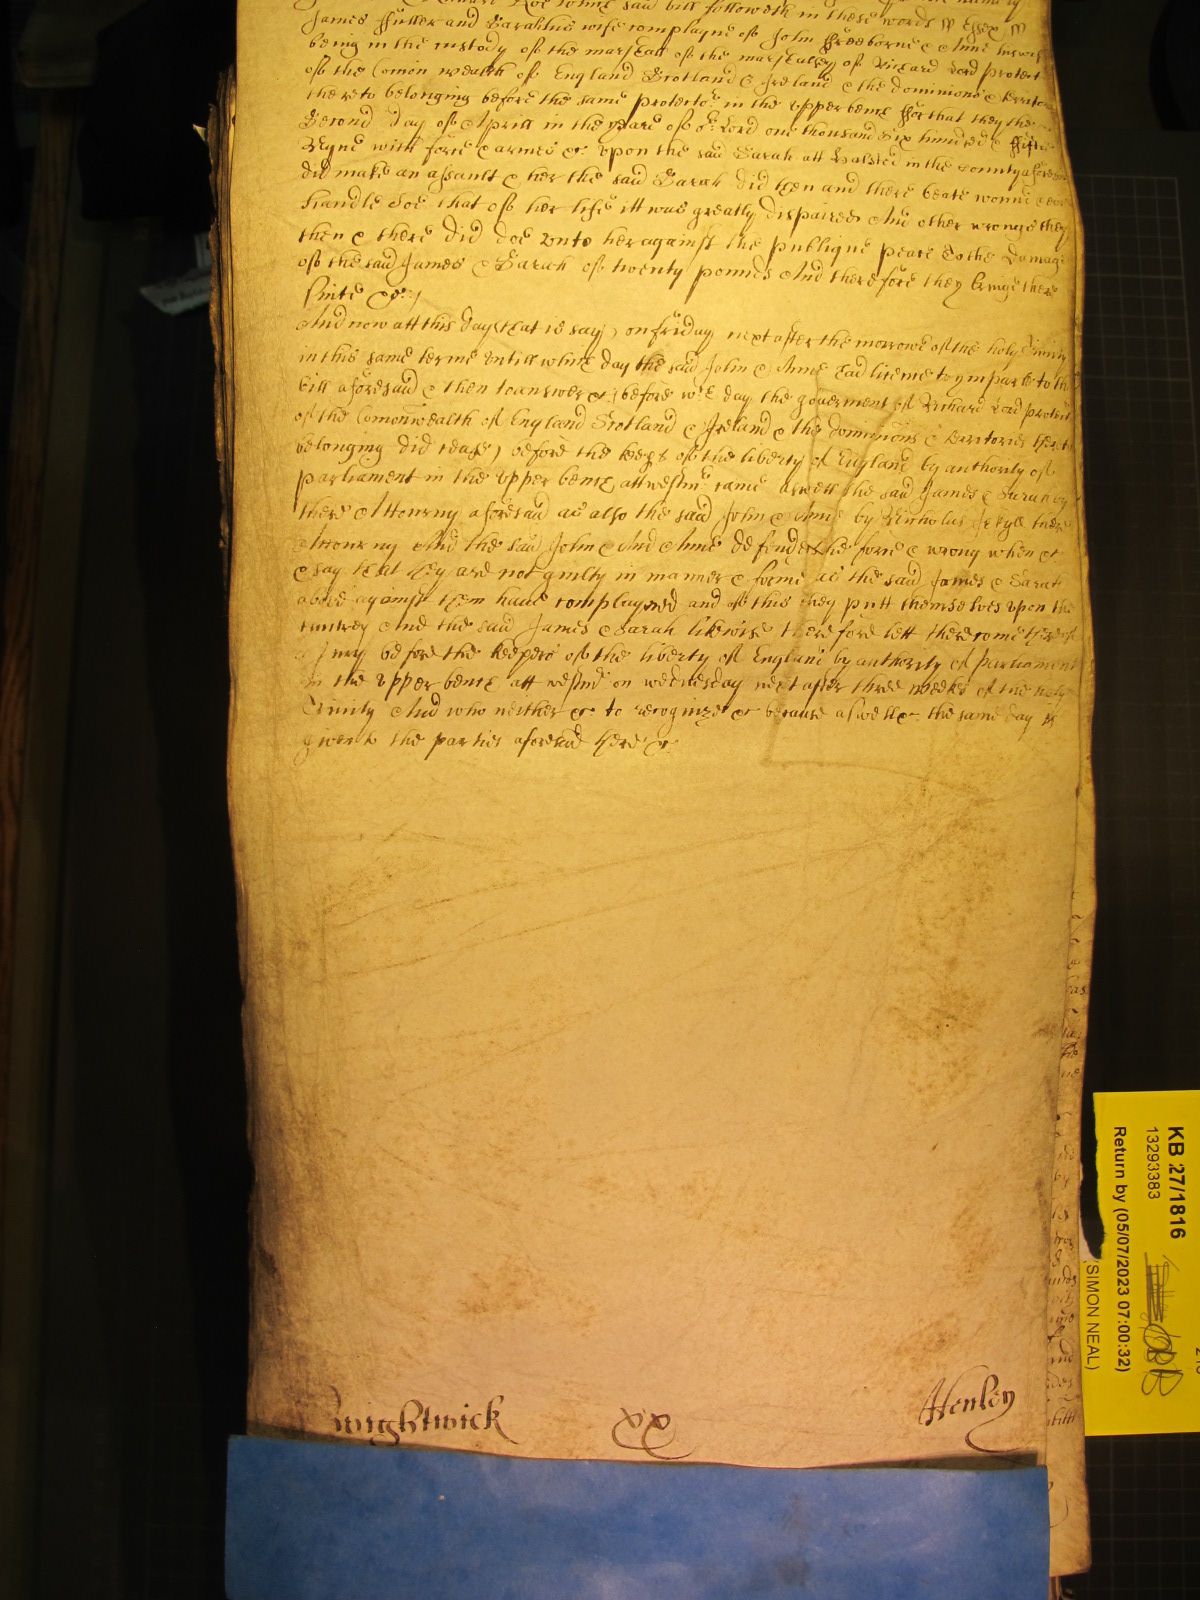 Roe w<sup>ch</sup> said bill followeth in these words ss Essex ss
James Fuller and Sarah his wife complayne of John Freeborne & Anne his wife
being in the custody of the marshall of the marshalsey of Richard Lord Protect
of the Comon wealth of England Scotland & Ireland & the dominions & territor
thereto belonging before the same protecto<sup>r</sup> in the upper bench For that they the
Second day of Aprill in the yeare of o<sup>r</sup> Lord one thousand six hundred & fiftie
Nyne with force & armes &c upon the said Sarah att Halsted in the county aforesaid
did make an assault & her the said Sarah did then and there beate wound &
handle Soe that of her life itt was greatly dispaired And other wronges they
then & there did doe unto her against the publique peace To the damage
of the said James & Sarah of twenty pounds And therefore they bringe there
Suite &c
And now att this day (that is say) on friday next after the morrowe of the holy Trinity
in this same terme untill which day the said John & Anne had licence to imparle to the
bill aforesaid & then to answer &c (before w<sup>ch</sup> day the goverment of Richard Lord protect
of the Comonwealth of England Scotland & Ireland & the dominions & territories thereto
belonging did cease) before the keeps of the liberty of England by authority of
parliament in the upper bench att westm<sup>r</sup> came aswell the said James & Sarah by
there Attourny aforesaid as also the said John & Anne by Nicholas Jekyll there
Attourny And the said John And Anne defend the force & wrong when &c
& say that they are not guilty in manner & forme as the said James & Sarah
above against them have complayned and of this they putt themselves upon the
cuntrey And the said James & Sarah likewise therefore lett there come thereof
a Jury before the keepers of the liberty of England by authority of parliament
in the upper bench att westm<sup>r</sup> on wednesday next after three weekes of the holy
Trinity And who neither &c to recognize &c because aswell &c the same day is
given to the parties aforesaid here &c
Wightwick xx Henley
KB 27/1816
13293383
Return by (05/07/2023 07:00:32)
(SIMON NEAL)